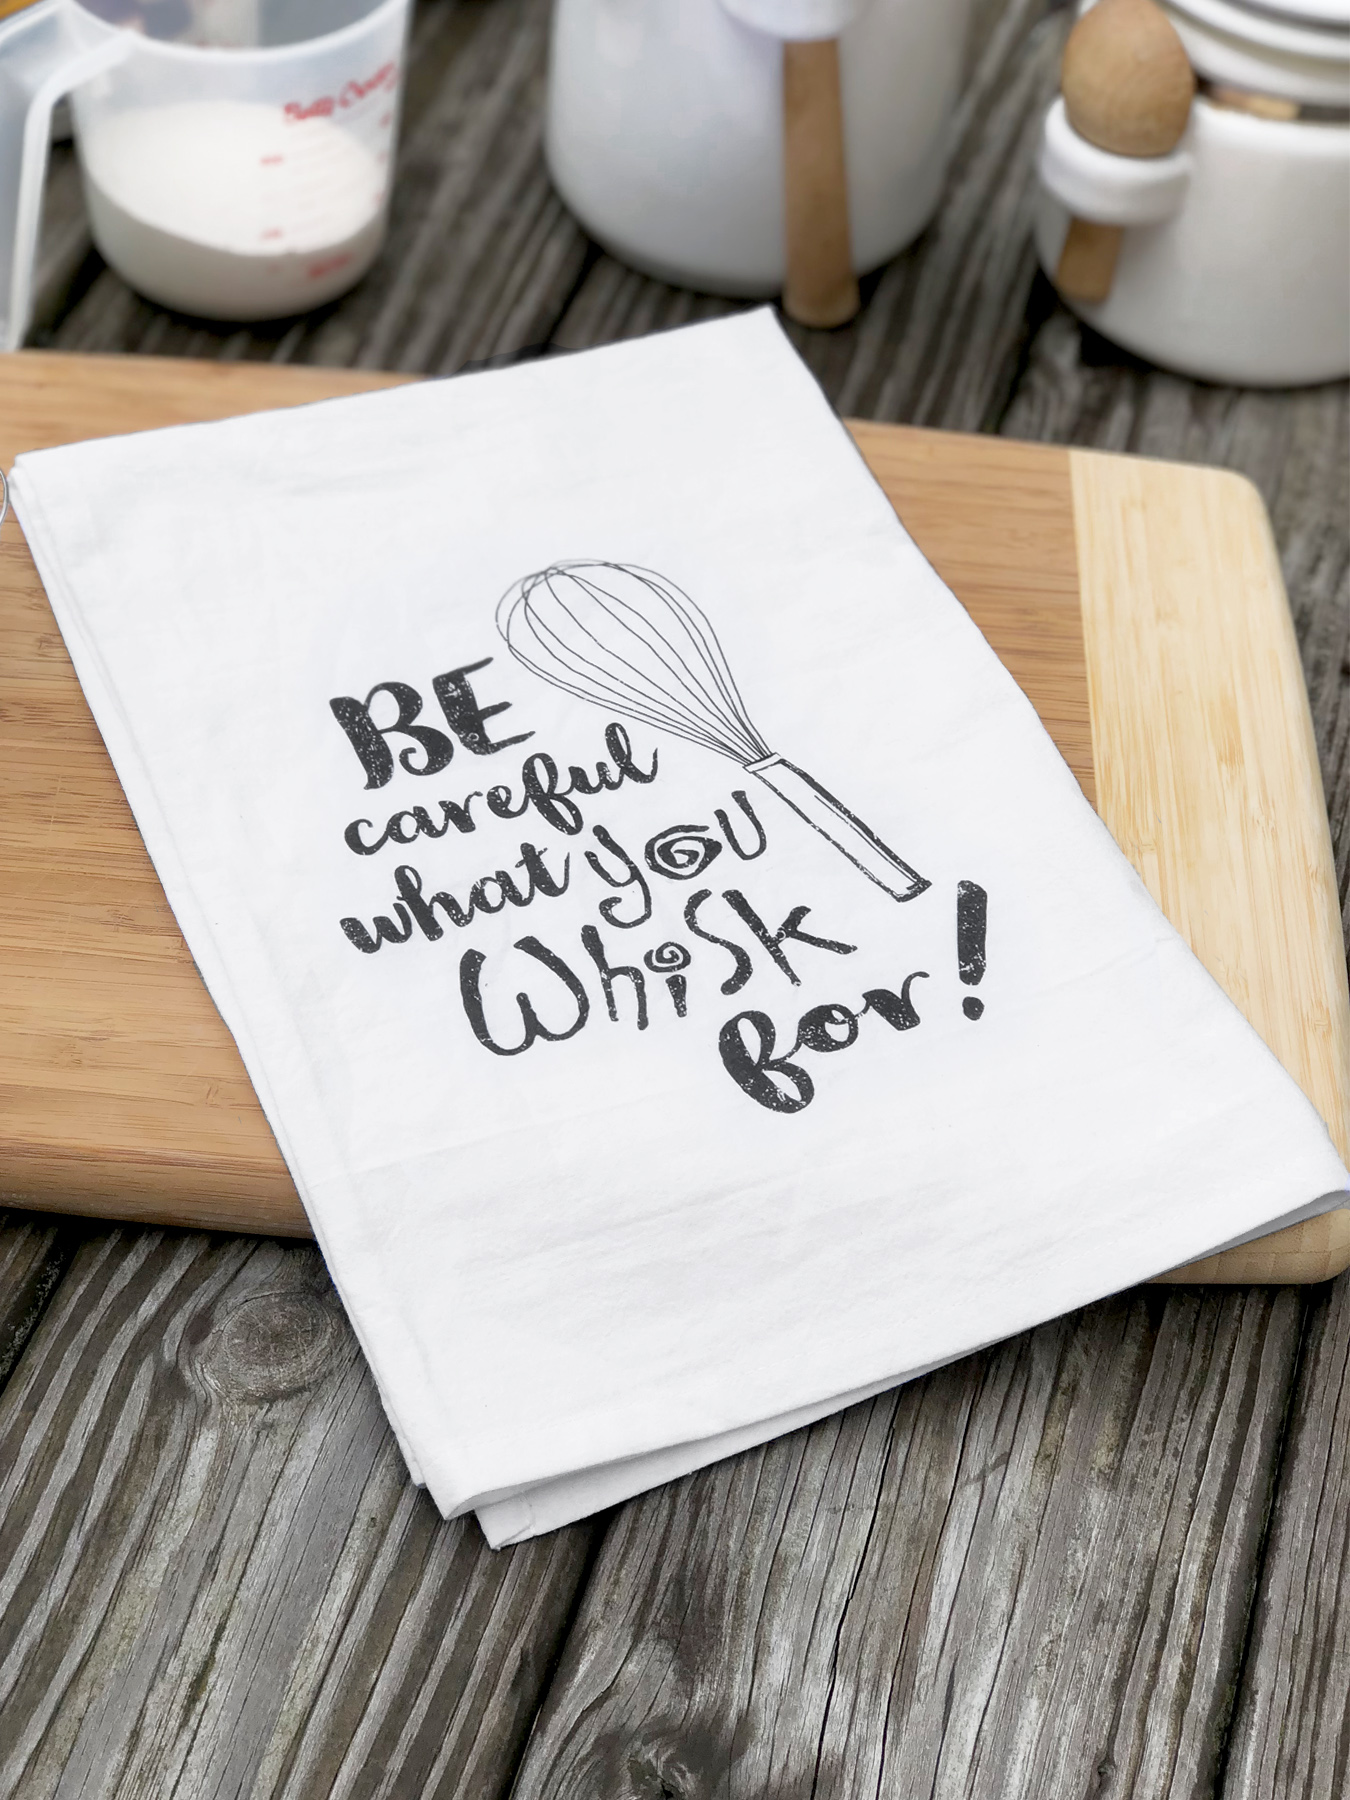 Betty Crocker
BE
careful
what you
Whisk
for!